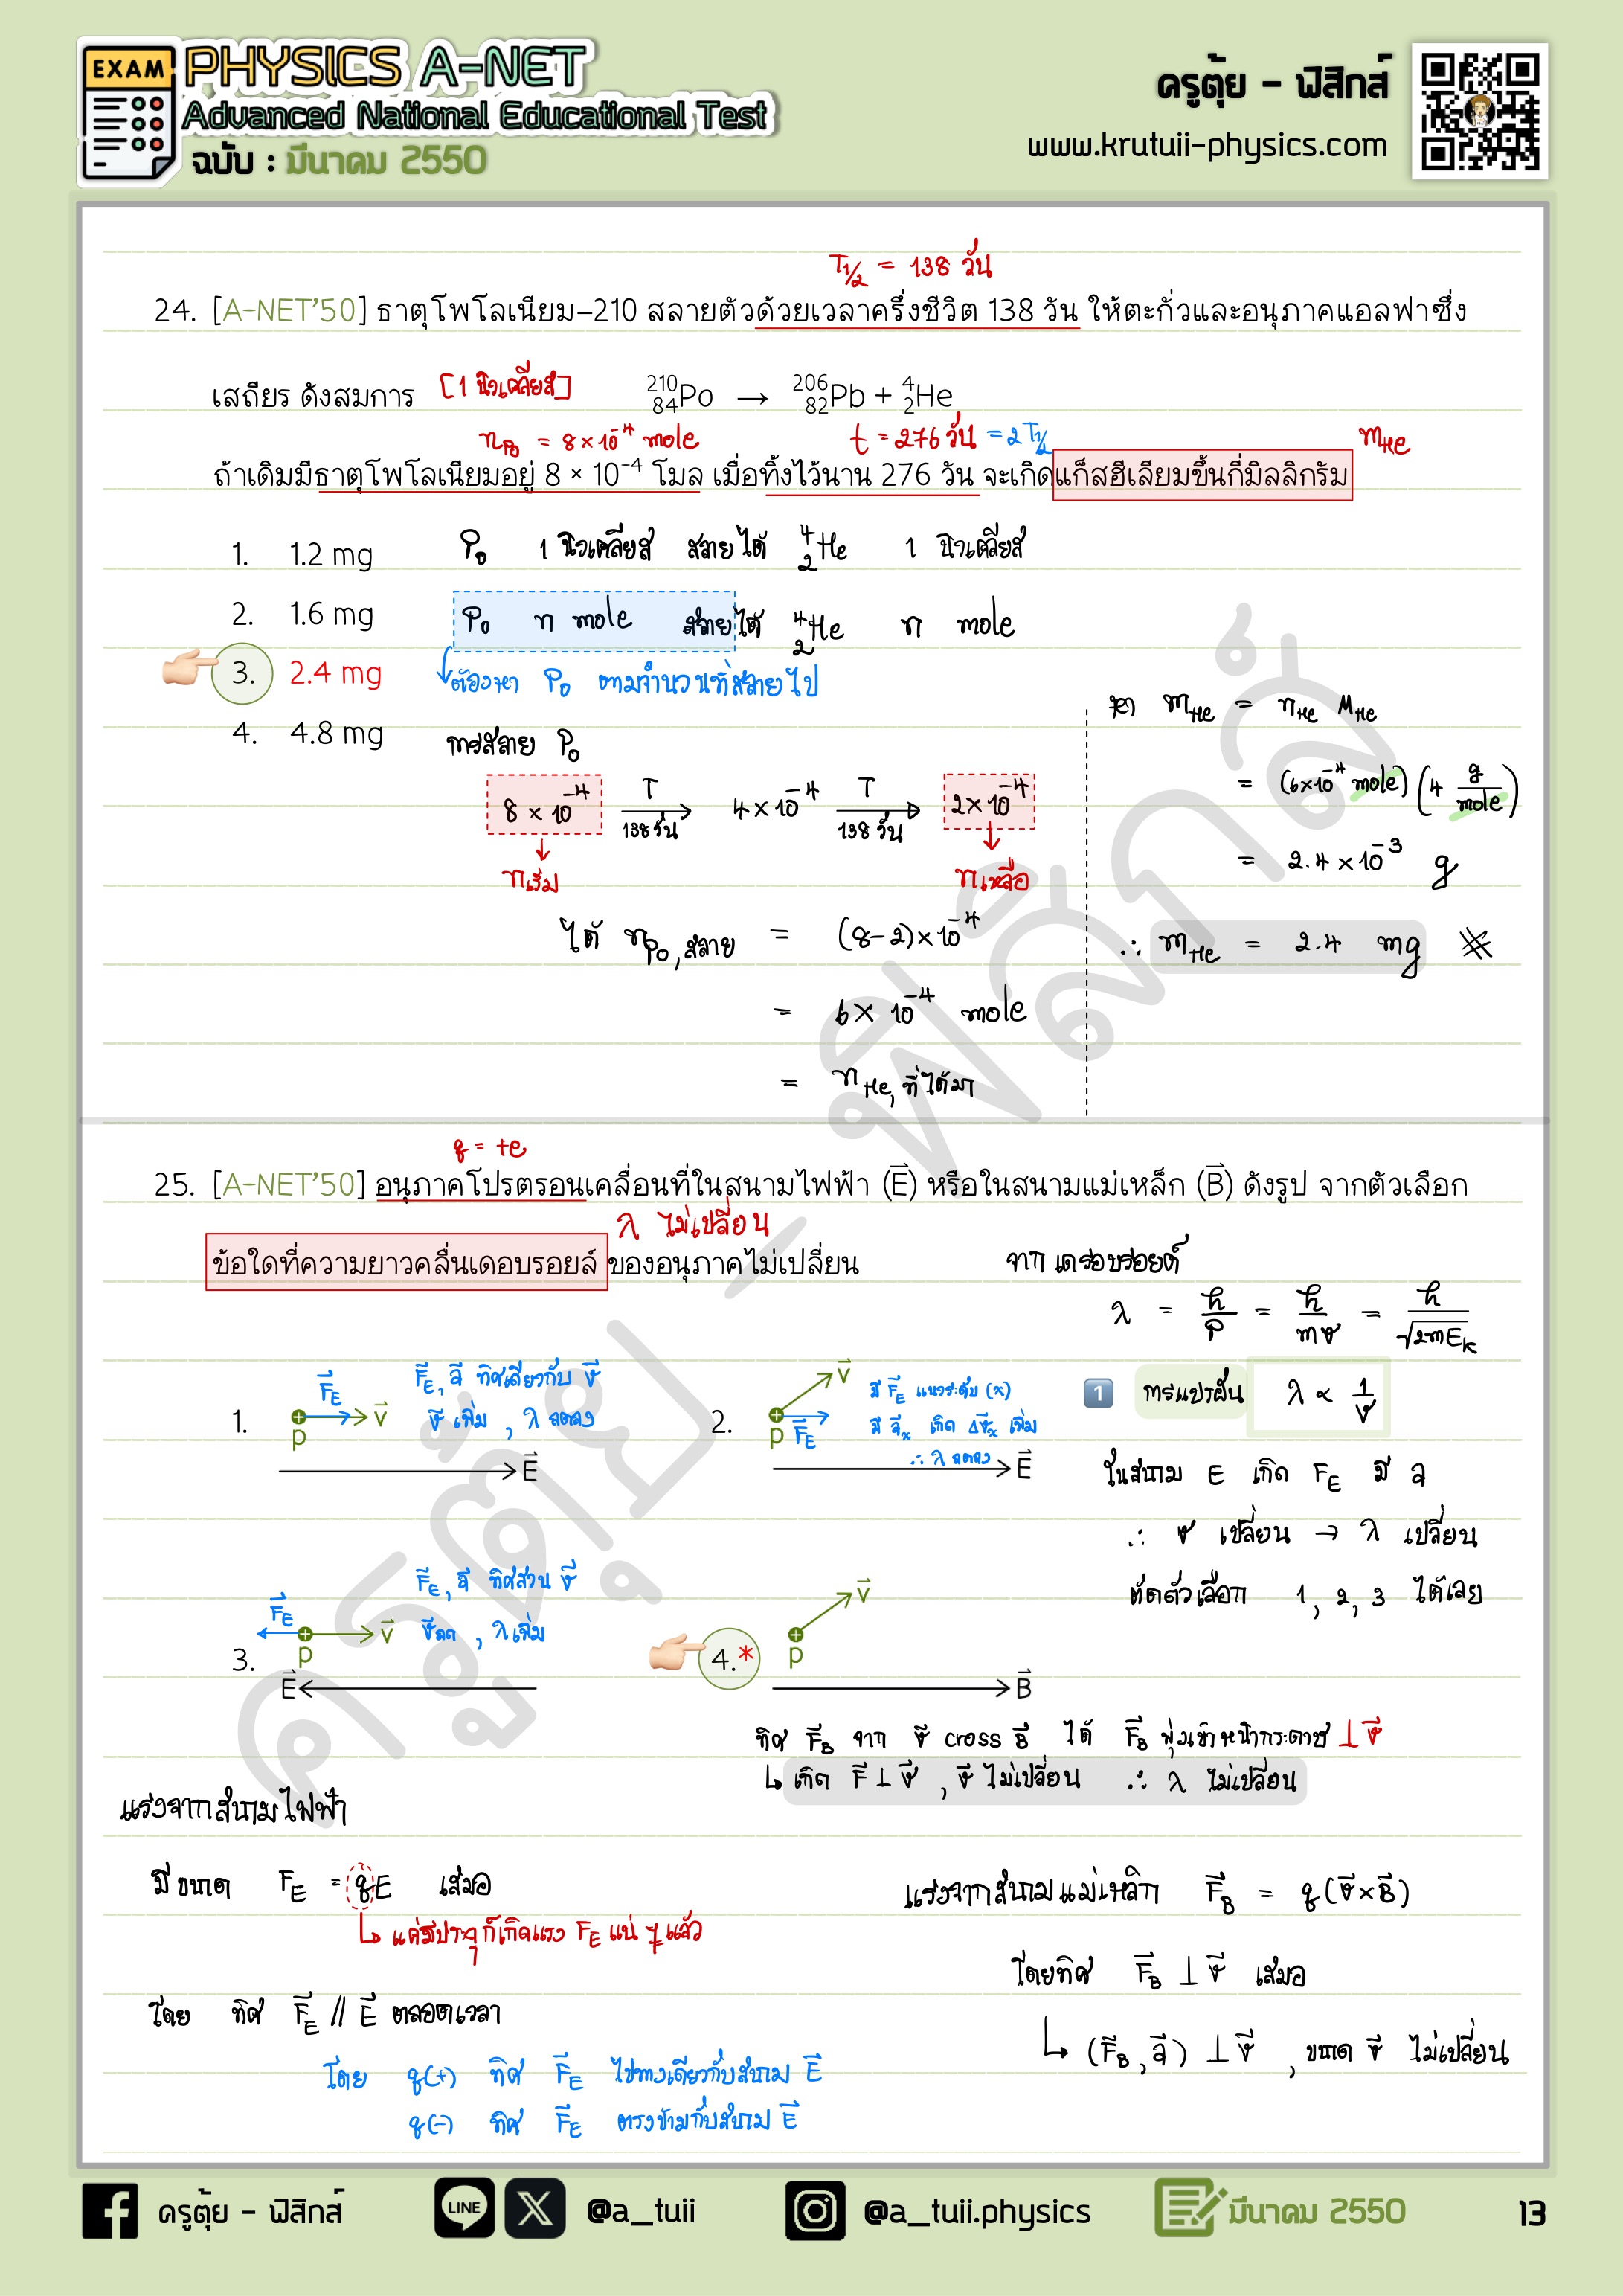 EXAM
PHYSICS A-NET
Advanced National Educational Test
ฉบับ : มีนาคม 2550
ครูตุ้ย - ฟิสิกส์
www.krutuii-physics.com
T½ = 138 วัน
24. [A-NET'50] ธาตุโพโลเนียม–210 สลายตัวด้วยเวลาครึ่งชีวิต 138 วัน ให้ตะกั่วและอนุภาคแอลฟาซึ่ง
เสถียร ดังสมการ [1 นิวเคลียส] ²¹⁰₈₄Po → ²⁰⁶₈₂Pb + ⁴₂He
n_Po = 8×10⁻⁴ mole t = 276 วัน = 2T½ m_He
ถ้าเดิมมีธาตุโพโลเนียมอยู่ 8 × 10⁻⁴ โมล เมื่อทิ้งไว้นาน 276 วัน จะเกิดแก็สฮีเลียมขึ้นกี่มิลลิกรัม
1. 1.2 mg
2. 1.6 mg
3. 2.4 mg
4. 4.8 mg
Po 1 นิวเคลียส สลายได้ ⁴₂He 1 นิวเคลียส
Po n mole สลายได้ ⁴₂He n mole
ต้องหา Po ตามจำนวนที่สลายไป
การสลาย Po
8 × 10⁻⁴ T 138 วัน 4×10⁻⁴ T 138 วัน 2×10⁻⁴
nเริ่ม nเหลือ
ได้ n_Po,สลาย = (8-2)×10⁻⁴
= 6× 10⁻⁴ mole
= n_He, ที่ได้มา
หา m_He = n_He M_He
= (6×10⁻⁴ mole) (4 g/mole)
= 2.4 ×10⁻³ g
∴ m_He = 2.4 mg
q = +e
25. [A-NET'50] อนุภาคโปรตรอนเคลื่อนที่ในสนามไฟฟ้า (E⃗) หรือในสนามแม่เหล็ก (B⃗) ดังรูป จากตัวเลือก
λ ไม่เปลี่ยน
ข้อใดที่ความยาวคลื่นเดอบรอยล์ ของอนุภาคไม่เปลี่ยน
จาก เดอบรอยด์
λ = h/P = h/mv = h/√2mE_k
1 การแปรผัน λ ∝ 1/v
ในสนาม E เกิด F_E มี a
∴ v เปลี่ยน → λ เปลี่ยน
ตัดตัวเลือก 1, 2, 3 ได้เลย
1. F⃗_E v⃗ p E⃗
F⃗_E, a⃗ ทิศเดียวกับ v⃗
v⃗ เพิ่ม , λ ลดลง
2. v⃗ p F⃗_E E⃗
มี F⃗_E แนวระดับ (x)
มี a⃗_x เกิด Δv⃗_x เพิ่ม
∴ λ ลดลง
3. F⃗_E v⃗ p E⃗
F⃗_E, a⃗ ทิศสวน v⃗
v⃗ลด , λ เพิ่ม
4.* v⃗ p B⃗
ทิศ F⃗_B จาก v⃗ cross B⃗ ได้ F⃗_B พุ่งเข้าหน้ากระดาษ ⊥ v⃗
เกิด F⃗ ⊥ v⃗ , v⃗ ไม่เปลี่ยน ∴ λ ไม่เปลี่ยน
แรงจากสนามไฟฟ้า
มีขนาด F_E = qE เสมอ
แค่มีประจุก็เกิดแรง F_E แน่ ๆ แล้ว
โดย ทิศ F⃗_E // E⃗ ตลอดเวลา
โดย q(+) ทิศ F⃗_E ไปทางเดียวกับสนาม E⃗
q(-) ทิศ F⃗_E ตรงข้ามกับสนาม E⃗
แรงจากสนามแม่เหล็ก F⃗_B = q(v⃗×B⃗)
โดยทิศ F⃗_B ⊥ v⃗ เสมอ
(F⃗_B, a⃗) ⊥ v⃗ , ขนาด v⃗ ไม่เปลี่ยน
ครูตุ้ย - ฟิสิกส์
ครูตุ้ย - ฟิสิกส์
LINE
@a_tuii
@a_tuii.physics
มีนาคม 2550
13